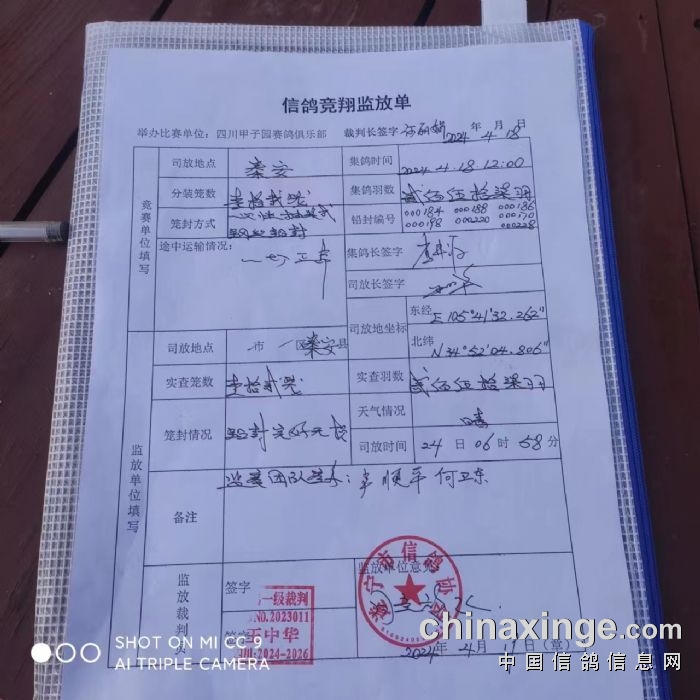 信鸽竞翔监放单
举办比赛单位：四川甲子园赛鸽俱乐部 裁判长签字 2024年4月18日
竞赛单位填写
司放地点 秦安 集鸽时间 2024.4.18.12:00
分装笼数 壹拾贰笼 集鸽羽数 贰佰伍拾柒羽
笼封方式 铅封 铅封编号 000184 000188 000186
000198 000220 000170
000228
途中运输情况： 一切正常 集鸽长签字
司放长签字
司放地坐标 东经 E 105°41'32.262"
北纬 N 34°52'04.806"
监放单位填写
司放地点 市 区 秦安县
实查笼数 壹拾贰笼 实查羽数 贰佰伍拾柒羽
笼封情况 铅封完好无损 天气情况 晴
司放时间 24日06时58分
备注 监赛团队签名：辛顺平 何卫东
监放裁判员 签字
监放单位意见
一级裁判
NO.2023011
王中华
2024-2026
信鸽协会
2024年4月 日（章）
SHOT ON MI CC 9
AI TRIPLE CAMERA
chinaxinge.com
中国信鸽信息网